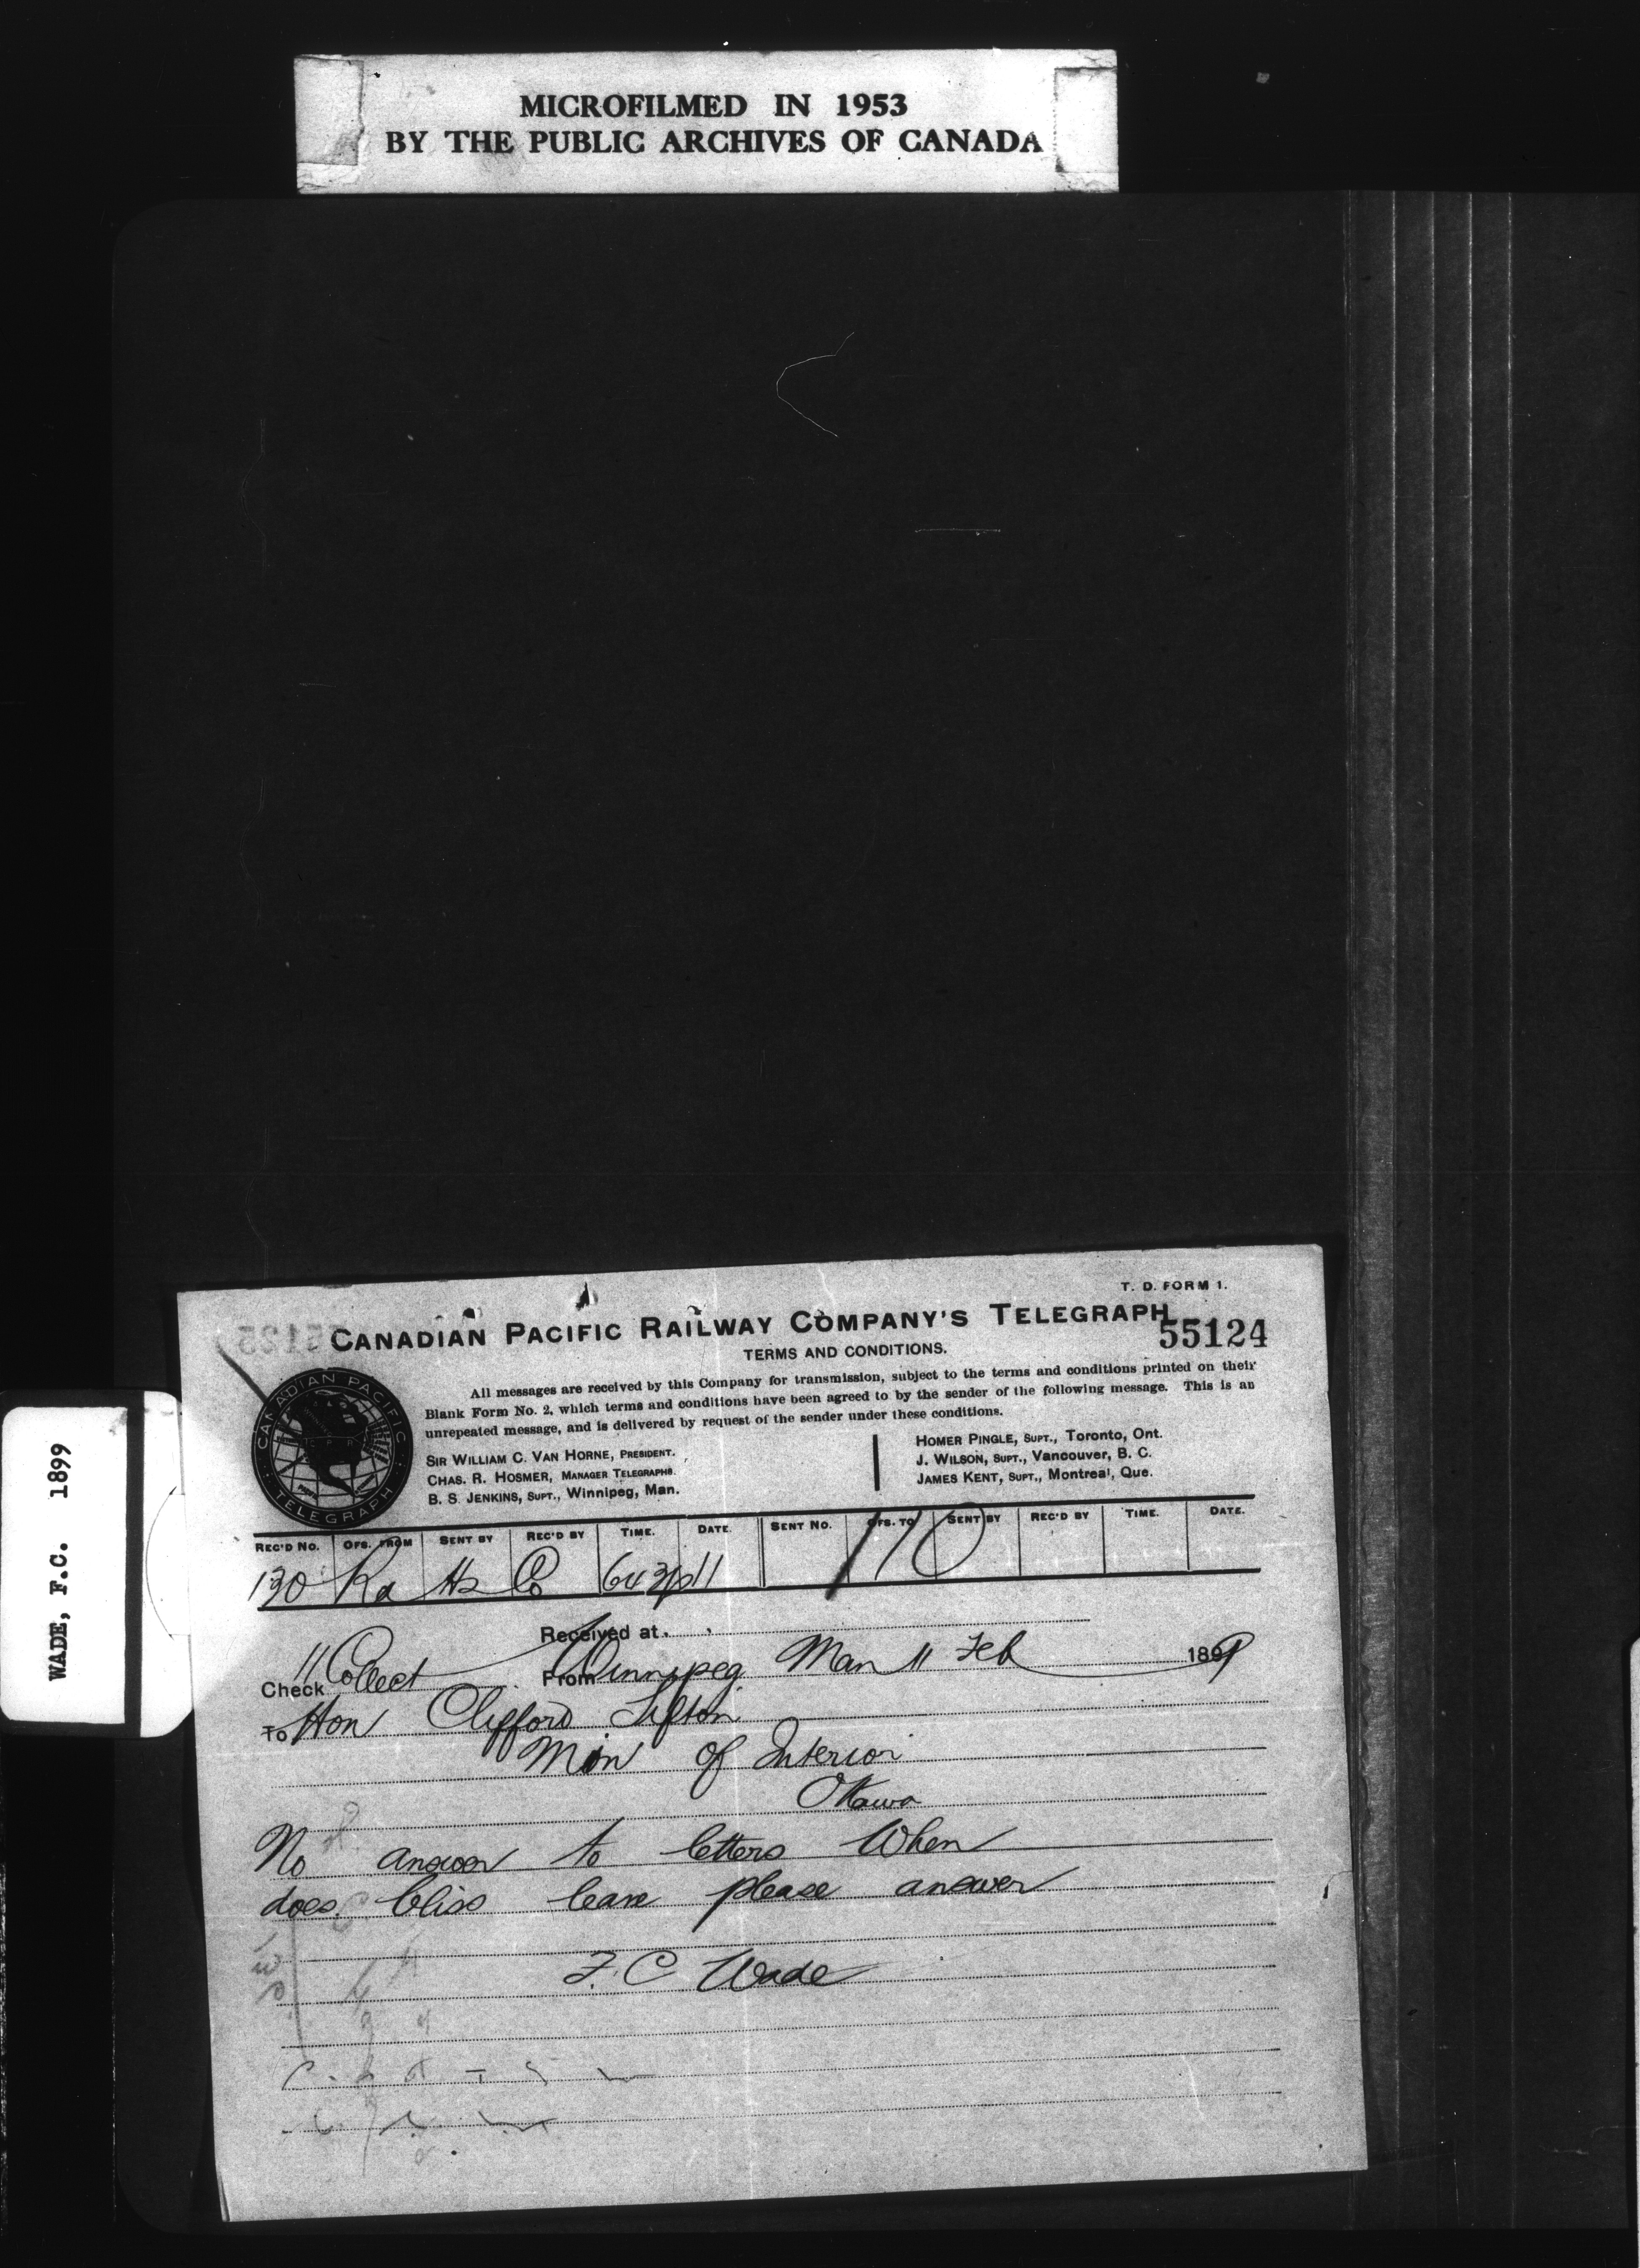 MICROFILMED IN 1953
BY THE PUBLIC ARCHIVES OF CANADA
WADE, F.C. 1899
T. D. FORM 1.
CANADIAN PACIFIC RAILWAY COMPANY'S TELEGRAPH
55124
TERMS AND CONDITIONS.
All messages are received by this Company for transmission, subject to the terms and conditions printed on their
Blank Form No. 2, which terms and conditions have been agreed to by the sender of the following message. This is an
unrepeated message, and is delivered by request of the sender under these conditions.
CANADIAN PACIFIC
TELEGRAPH
SIR WILLIAM C. VAN HORNE, PRESIDENT.
CHAS. R. HOSMER, MANAGER TELEGRAPHS.
B. S. JENKINS, SUPT., Winnipeg, Man.
HOMER PINGLE, SUPT., Toronto, Ont.
J. WILSON, SUPT., Vancouver, B. C.
JAMES KENT, SUPT., Montreal, Que.
REC'D NO. OFS. FROM SENT BY REC'D BY TIME. DATE. SENT NO. OFS. TO SENT BY REC'D BY TIME. DATE.
130 Ra 11 110
Received at
Check 11 Collect From Winnipeg Man 11 Feb 1899
To Hon Clifford Sifton
Min of Interior
Ottawa
No answer to letters When
does bliss leave please answer
F. C Wade